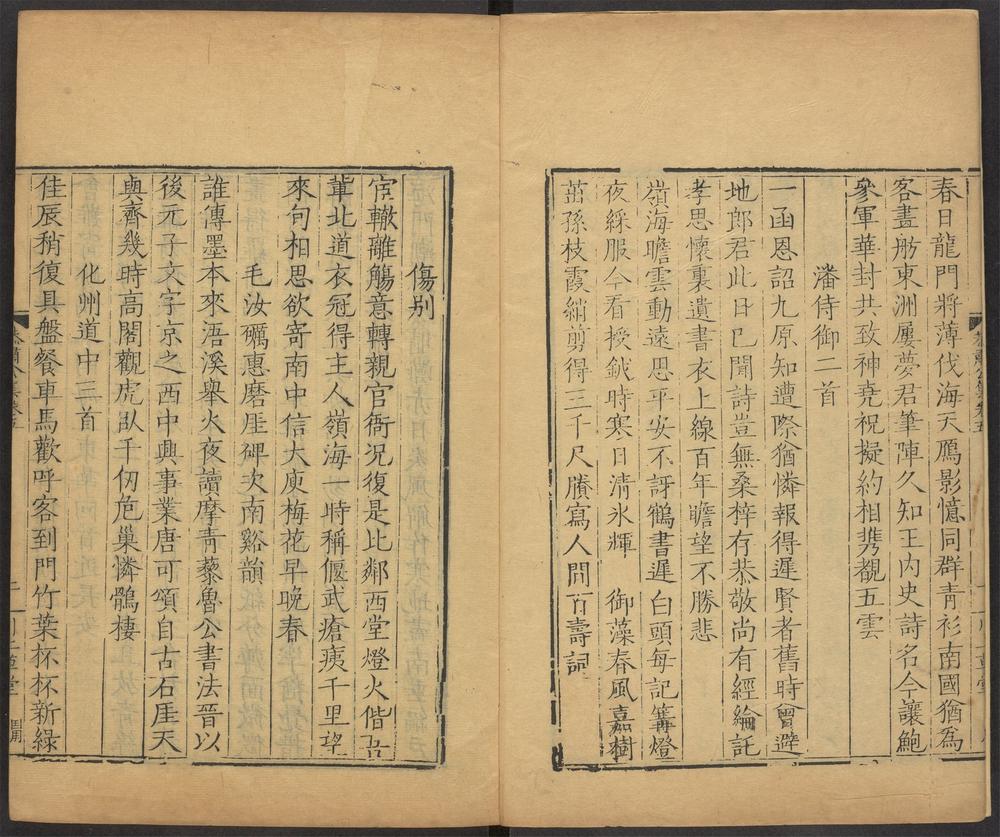 春日龍門將薄伐海天鴈影憶同群青衫南國猶為
客畫舫東洲屢夢君筆陣久知王內史詩名今讓鮑
參軍華封共致神堯祝擬約相携覩五雲
潘侍御二首
一函恩詔九原知遭際猶憐報得遲賢者舊時曾避
地郎君此日已聞詩豈無桑梓存恭敬尚有經綸託
孝思懷裏遺書衣上線百年瞻望不勝悲
嶺海瞻雲動遠思平安不訝鶴書遲白頭每記篝燈
夜綵服今看授鉞時寒日清氷輝 御藻春風嘉樹
茁孫枝霞綃剪得三千尺賸寫人間百壽詞
傷别
宦轍離觴意轉親官衙况復是比鄰西堂燈火偕吾
輩北道衣冠得主人嶺海一時稱偃武瘡痍千里望
來旬相思欲寄南中信大庾梅花早晚春
毛汝礪惠磨崖碑次南谿韻
誰傳墨本來浯溪舉火夜讀摩青藜魯公書法晉以
後元子文字京之西中興事業唐可頌自古石崖天
與齊幾時高閣觀虎臥千仞危巢憐鶻棲
化州道中三首
佳辰稍復具盤餐車馬歡呼客到門竹葉杯杯新綠